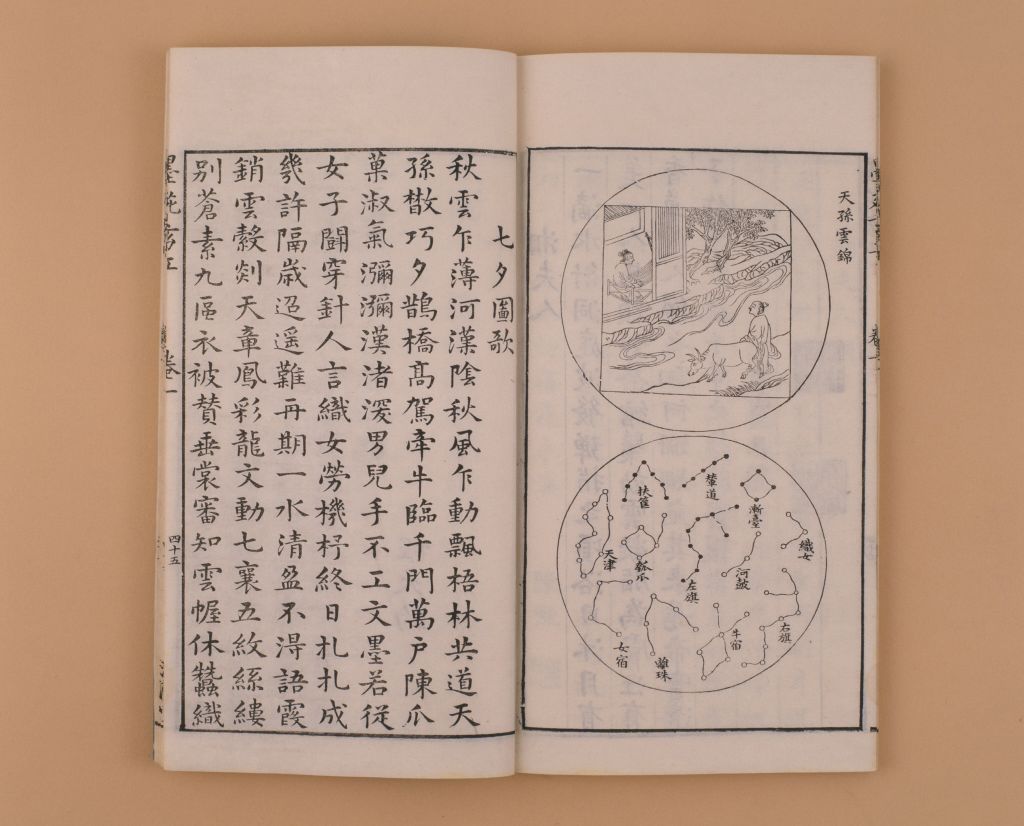 天孫雲錦
織女
漸臺
輦道
扶筐
河鼓
左旗
瓠瓜
天津
右旗
牛宿
離珠
女宿
七夕圖歌
秋雲乍薄河漢陰秋風乍動飄梧林共道天
孫㪚巧夕鵲橋髙駕牽牛臨千門萬户陳瓜
菓淑氣瀰瀰漢渚湲男兒手不工文墨若從
女子鬪穿針人言織女勞機杼終日札札成
幾許隔歲迢遥難再期一水清盈不淂語霞
銷雲縠剡天章鳳彩龍文動七襄五紋絲縷
别蒼素九區衣被賛垂裳審知雲幄休蠶織
卷一
四十五